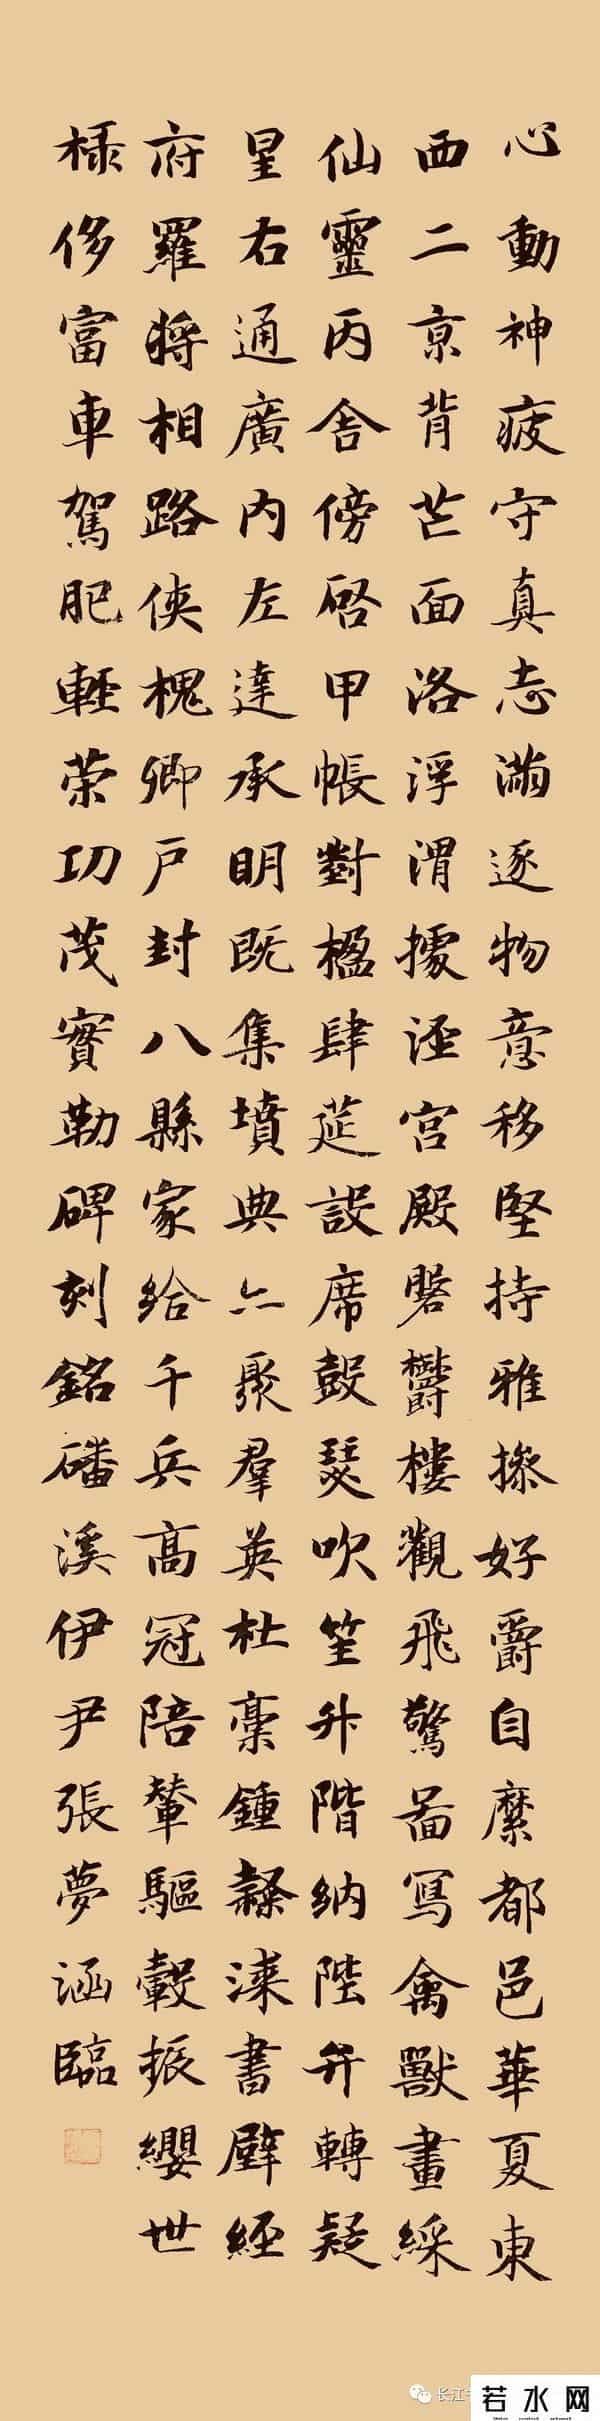 心動神疲守真志滿逐物意移堅持雅操好爵自縻都邑華夏東
西二亰背芒面洛浮渭據涇宮殿磐鬱樓觀飛驚圖寫禽獸畫綵
仙靈丙舍傍啓甲帳對楹肆筵設席鼓瑟吹笙升階納陛弁轉疑
星右通廣內左達承明既集墳典亦聚羣英杜稾鍾隸漆書壁經
府羅將相路俠槐卿戶封八縣家給千兵高冠陪輦驅轂振纓世
祿侈富車駕肥輕策功茂實勒碑刻銘磻溪伊尹張夢涵臨
长江
若水网